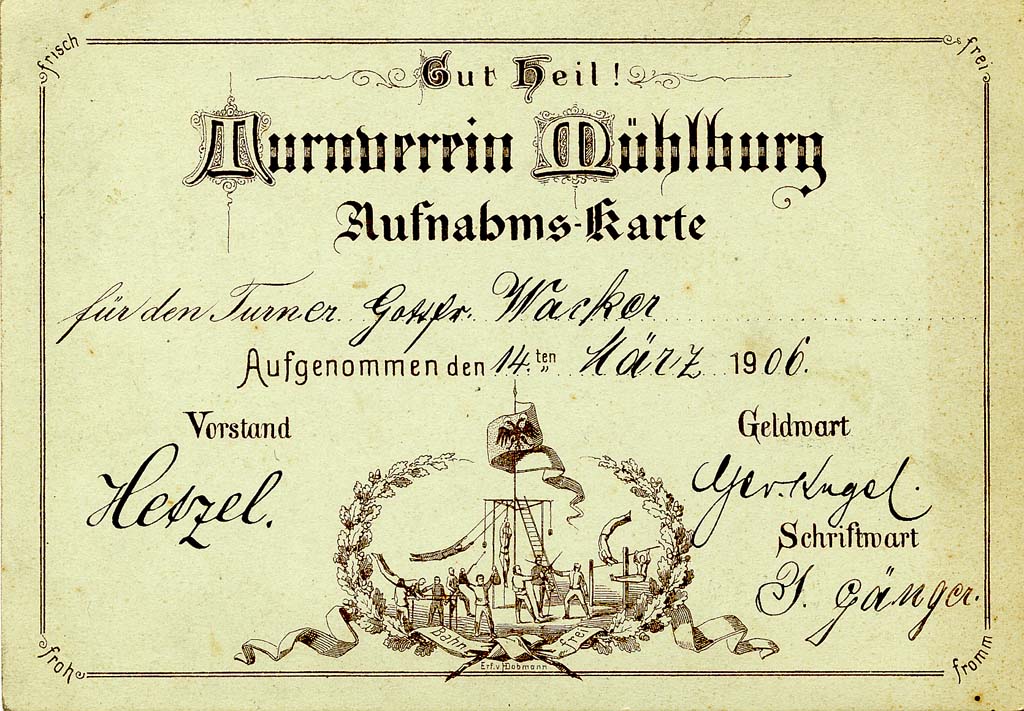 frisch
frei
Gut Heil!
Turnverein Mühlburg
Aufnahms-Karte
für den Turner Gottfr. Wacker
Aufgenommen den 14.ten März 1906.
Vorstand
Geldwart
Hetzel.
Kugel.
Schriftwart
J. Gänger.
Bahn frei
Erf. v. H. Dobmann
froh
fromm